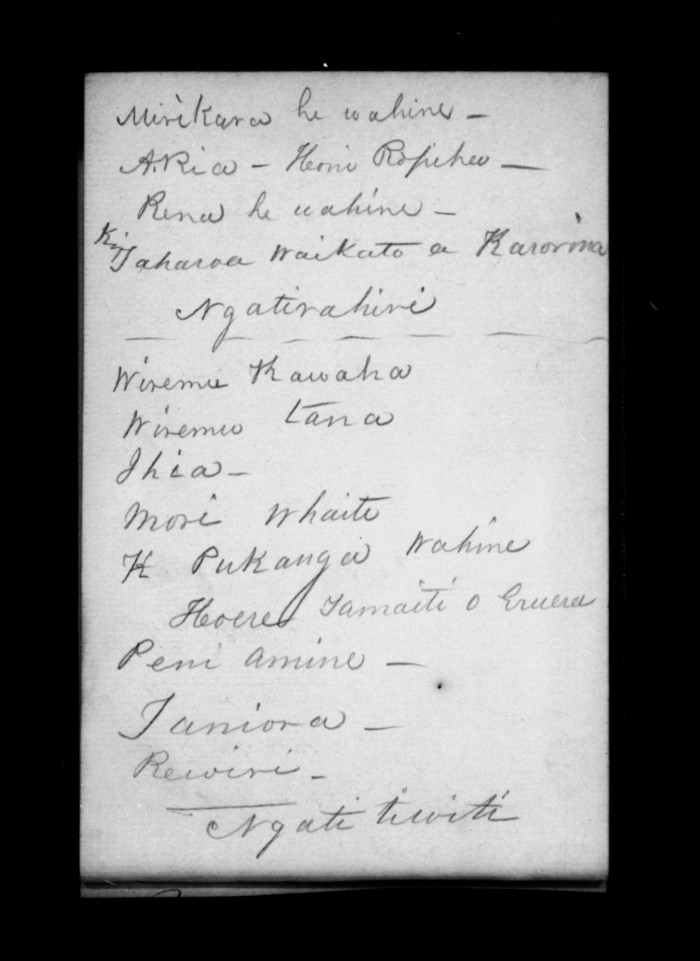 Mirikara he wahine –
A. Ria – Heni Ropiha –
Rena he wahine –
Ki Taharoa Waikato a Karorina
Ngatirahiri
Wiremu Kawaha
Wiremu Tana
Ihia –
Mori Whaiti
K Pukanga Wahine
Hoera Tamaiti o Eruera
Peni Amine –
Taniora –
Rewiri –
Ngati tiwiti